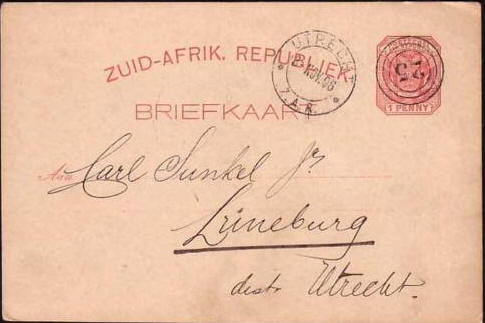 ZUID-AFRIK. REPUBLIEK
UTRECHT
NOV. 96
Z.A.R.
25
1 PENNY
BRIEFKAART
Aan Carl Sunkel Jr
Lüneburg
distr Utrecht.